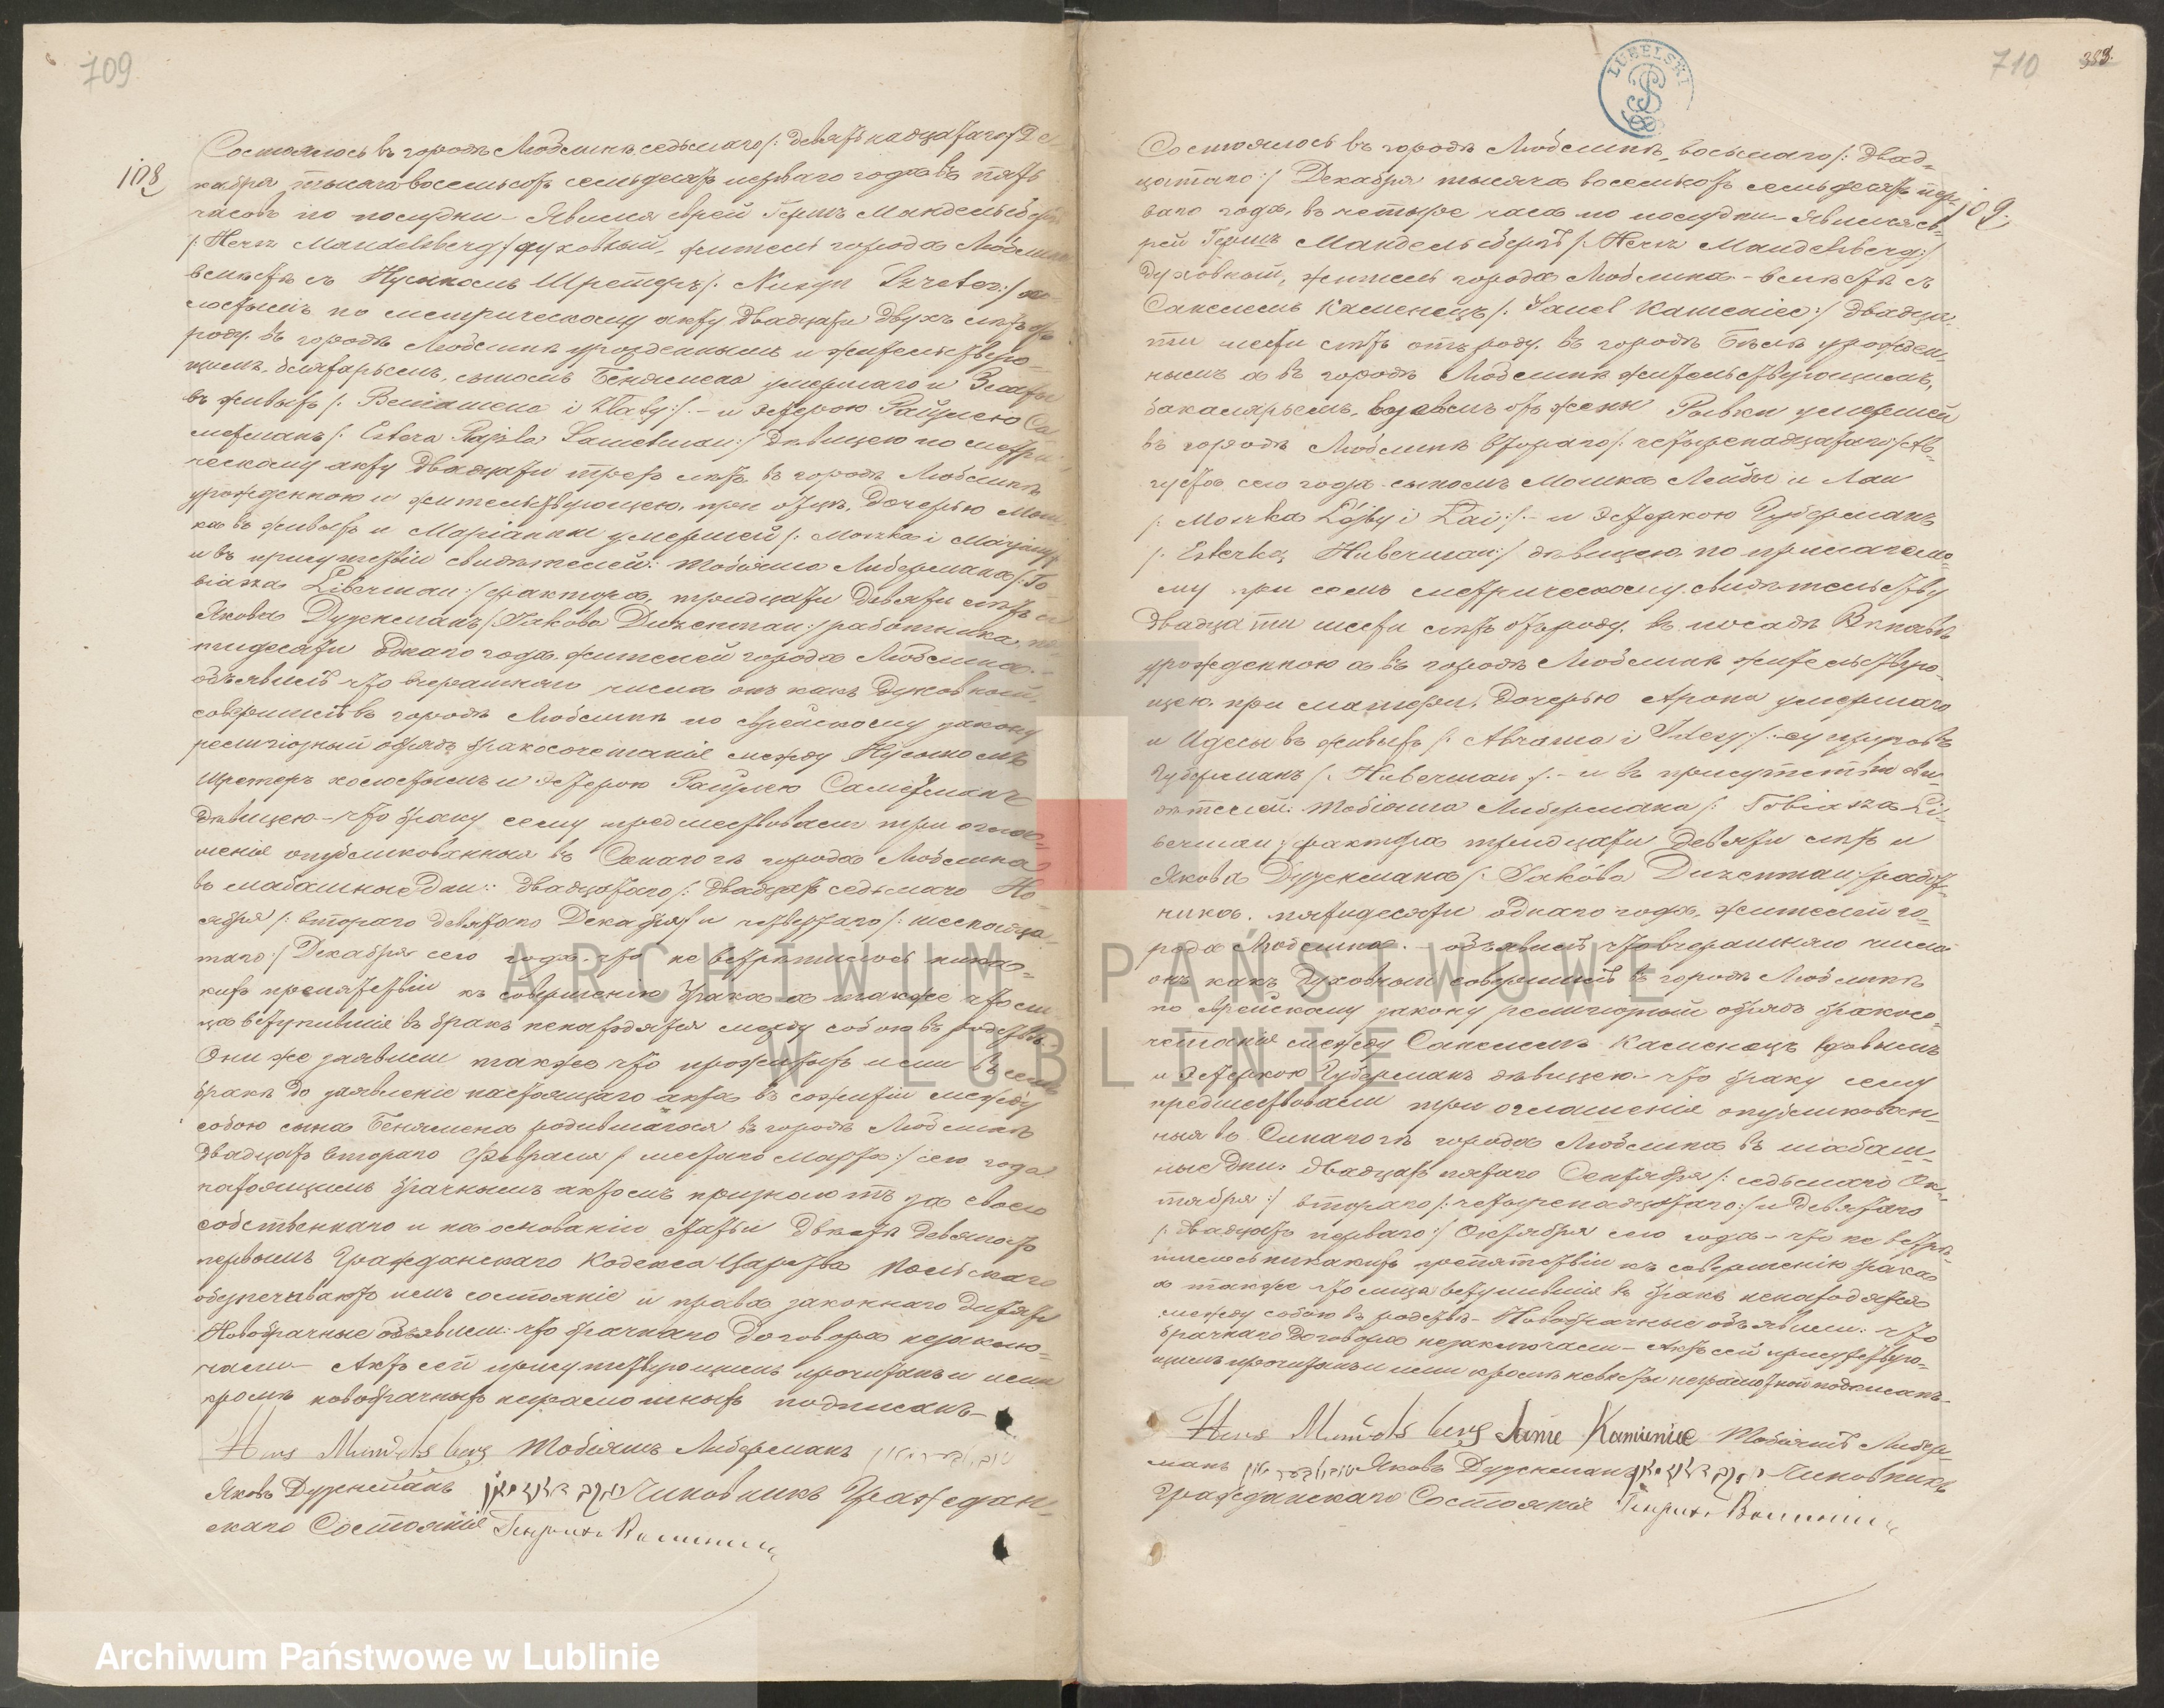 709
108
Состоялось въ городѣ Люблинѣ седьмаго /: девятьнадцатаго :/ Де-
кабря тысяча восемьсотъ семьдесятъ перваго года въ пять
часовъ по полудни – Явился еврей Герш Мандельсбергъ
/: Hersz Mandelsberg :/ духовный, житель города Люблина
вмѣстѣ съ Нусыномъ Шретеръ /: Nusyn Szreter :/ хо-
лостымъ по метрическому акту двадцати двухъ лѣтъ отъ
роду, въ городѣ Люблинѣ урожденнымъ и жительствую-
щимъ, сыномъ Бенямена умершаго и Златы
въ живыхъ /: Beniamena i Złaty :/ – и Эстерою Райзлею Са-
метманъ /: Estera Rajzla Sametman :/ дѣвицею по метри-
ческому акту двадцати трехъ лѣтъ въ городѣ Люблинѣ
урожденною и жительствующею, при отцѣ, дочерью Мош-
ка въ живыхъ и Маріанны умершей /: Moszka i Marjanny
и въ присутствіи свидѣтелей: Тобіяша Либермана /: To-
biasza Liberman :/ фактора, тридцати девяти лѣтъ и
Якова Дуженманъ /: Jakova Duzenman :/ работника, пя-
тидесяти однаго года, жителей города Люблина. –
объявилъ что вчерашняго числа онъ какъ духовный,
совершилъ въ городѣ Люблинѣ по еврейскому закону
религіозный обрядъ бракосочетанія между Нусыномъ
Шретеръ холостымъ и Эстерою Райзлею Саметманъ
дѣвицею – что браку сему предшествовали три огла-
шенія опубликованныя въ Синагогѣ города Люблина
въ шабашные дни: двадцатаго /: двадцать седьмаго Но-
ября /: втораго девятаго Декабря и четвертаго /: шестнадца-
таго :/ Декабря сего года – что не встрѣтилось ника-
кихъ препятствій къ совершенію брака а также что ли-
ца вступившія въ бракъ ненаходятся между собою въ родствѣ.
Они же заявили также что прижитаго ими въ семъ
бракѣ до заявленія настоящаго акта въ сожитіи между
собою сына Бенямена родившагося въ городѣ Люблинѣ
двадцать втораго Февраля /: шестаго Марта :/ сего года
настоящимъ брачнымъ актомъ признаютъ за своего
собственнаго и на основаніи статьи двѣстѣ девяносто
первымъ Гражданскаго Кодекса Царства Польскаго
обезпечиваютъ ему состояніе и права законнаго дитяти
Новобрачные объявили: что брачнаго договора незаклю-
чали – Актъ сей присутствующимъ прочитанъ и ими
кромѣ новобрачныхъ неграмотныхъ подписанъ –
Hers Mandels berg Тобіяшъ Либерманъ
Яковъ Дуженманъ Чиновникъ Граждан-
скаго Состоянія
LUBELSKI
710
388.
109.
Состоялось въ городѣ Люблинѣ, восьмаго /: двад-
цатаго :/ Декабря тысяча восемьсотъ семьдесятъ пер-
ваго года, въ четыре часа по полудни – явился ев-
рей Гершъ Мандельсбергъ /: Hersz Mandelsberg :/
Духовный, житель города Люблина – вмѣстѣ съ
Санелемъ Каменецъ /: Sanel Kameniec :/ двадца-
ти шести лѣтъ отъ роду, въ городѣ Бѣлѣ урожден-
нымъ а въ городѣ Люблинѣ жительствующимъ,
бакаляремъ, вдовымъ отъ жены Рывки умершей
въ городѣ Люблинѣ втораго /: четырнадцатаго :/ Ав-
густа сего года сыномъ Мошка Лейбы и Лаи
/: Moszka Lejby i Łai :/ – и Эстеркою Губерманъ
/: Esterką Huberman :/ дѣвицею по прилагаемо-
му при семъ метрическому свидѣтельству
двадцати шести лѣтъ отъ роду, въ посадѣ
урожденною а въ городѣ Люблинѣ жительствую-
щею, при матери, дочерью Арона умершаго
и Идесы въ живыхъ /: Abrama i Idesy :/ супруговъ
Губерманъ /: Huberman :/ – и въ присутствіи сви-
дѣтелей: Тобіяша Либермана /: Tobiasza Li-
berman :/ фактора тридцати девяти лѣтъ и
Якова Дуженмана /: Jakóba Duzenman :/ работ-
ника, пятидесяти однаго года, жителей го-
рода Люблина. – объявилъ что вчерашняго числа
онъ какъ духовный совершилъ въ городѣ Люблинѣ
по еврейскому закону религіозный обрядъ бракосо-
четанія между Санелемъ Каменецъ вдовымъ
и Эстеркою Губерманъ дѣвицею – что браку сему
предшествовали три оглашенія опубликован-
ныя въ Синагогѣ города Люблина въ шабаш-
ные дни: двадцать пятаго Сентября /: седьмаго Ок-
тября :/ втораго /: четырнадцатаго :/ и девятаго
/: двадцать перваго :/ Октября сего года – что не встрѣ-
тилось никакихъ препятствій къ совершенію брака
а также что лица вступившія въ бракъ ненаходятся
между собою въ родствѣ – Новобрачные объявили: что
брачнаго договора незаключали – Актъ сей присутствую-
щимъ прочитанъ и ими кромѣ невѣсты неграмотной подписанъ –
Hers Mandels berg Kamieniec Тобіяшъ Либер-
манъ Яковъ Дуженманъ Чиновникъ
Гражданскаго Состоянія
ARCHIWUM PAŃSTWOWE
W LUBLINIE
Archiwum Państwowe w Lublinie